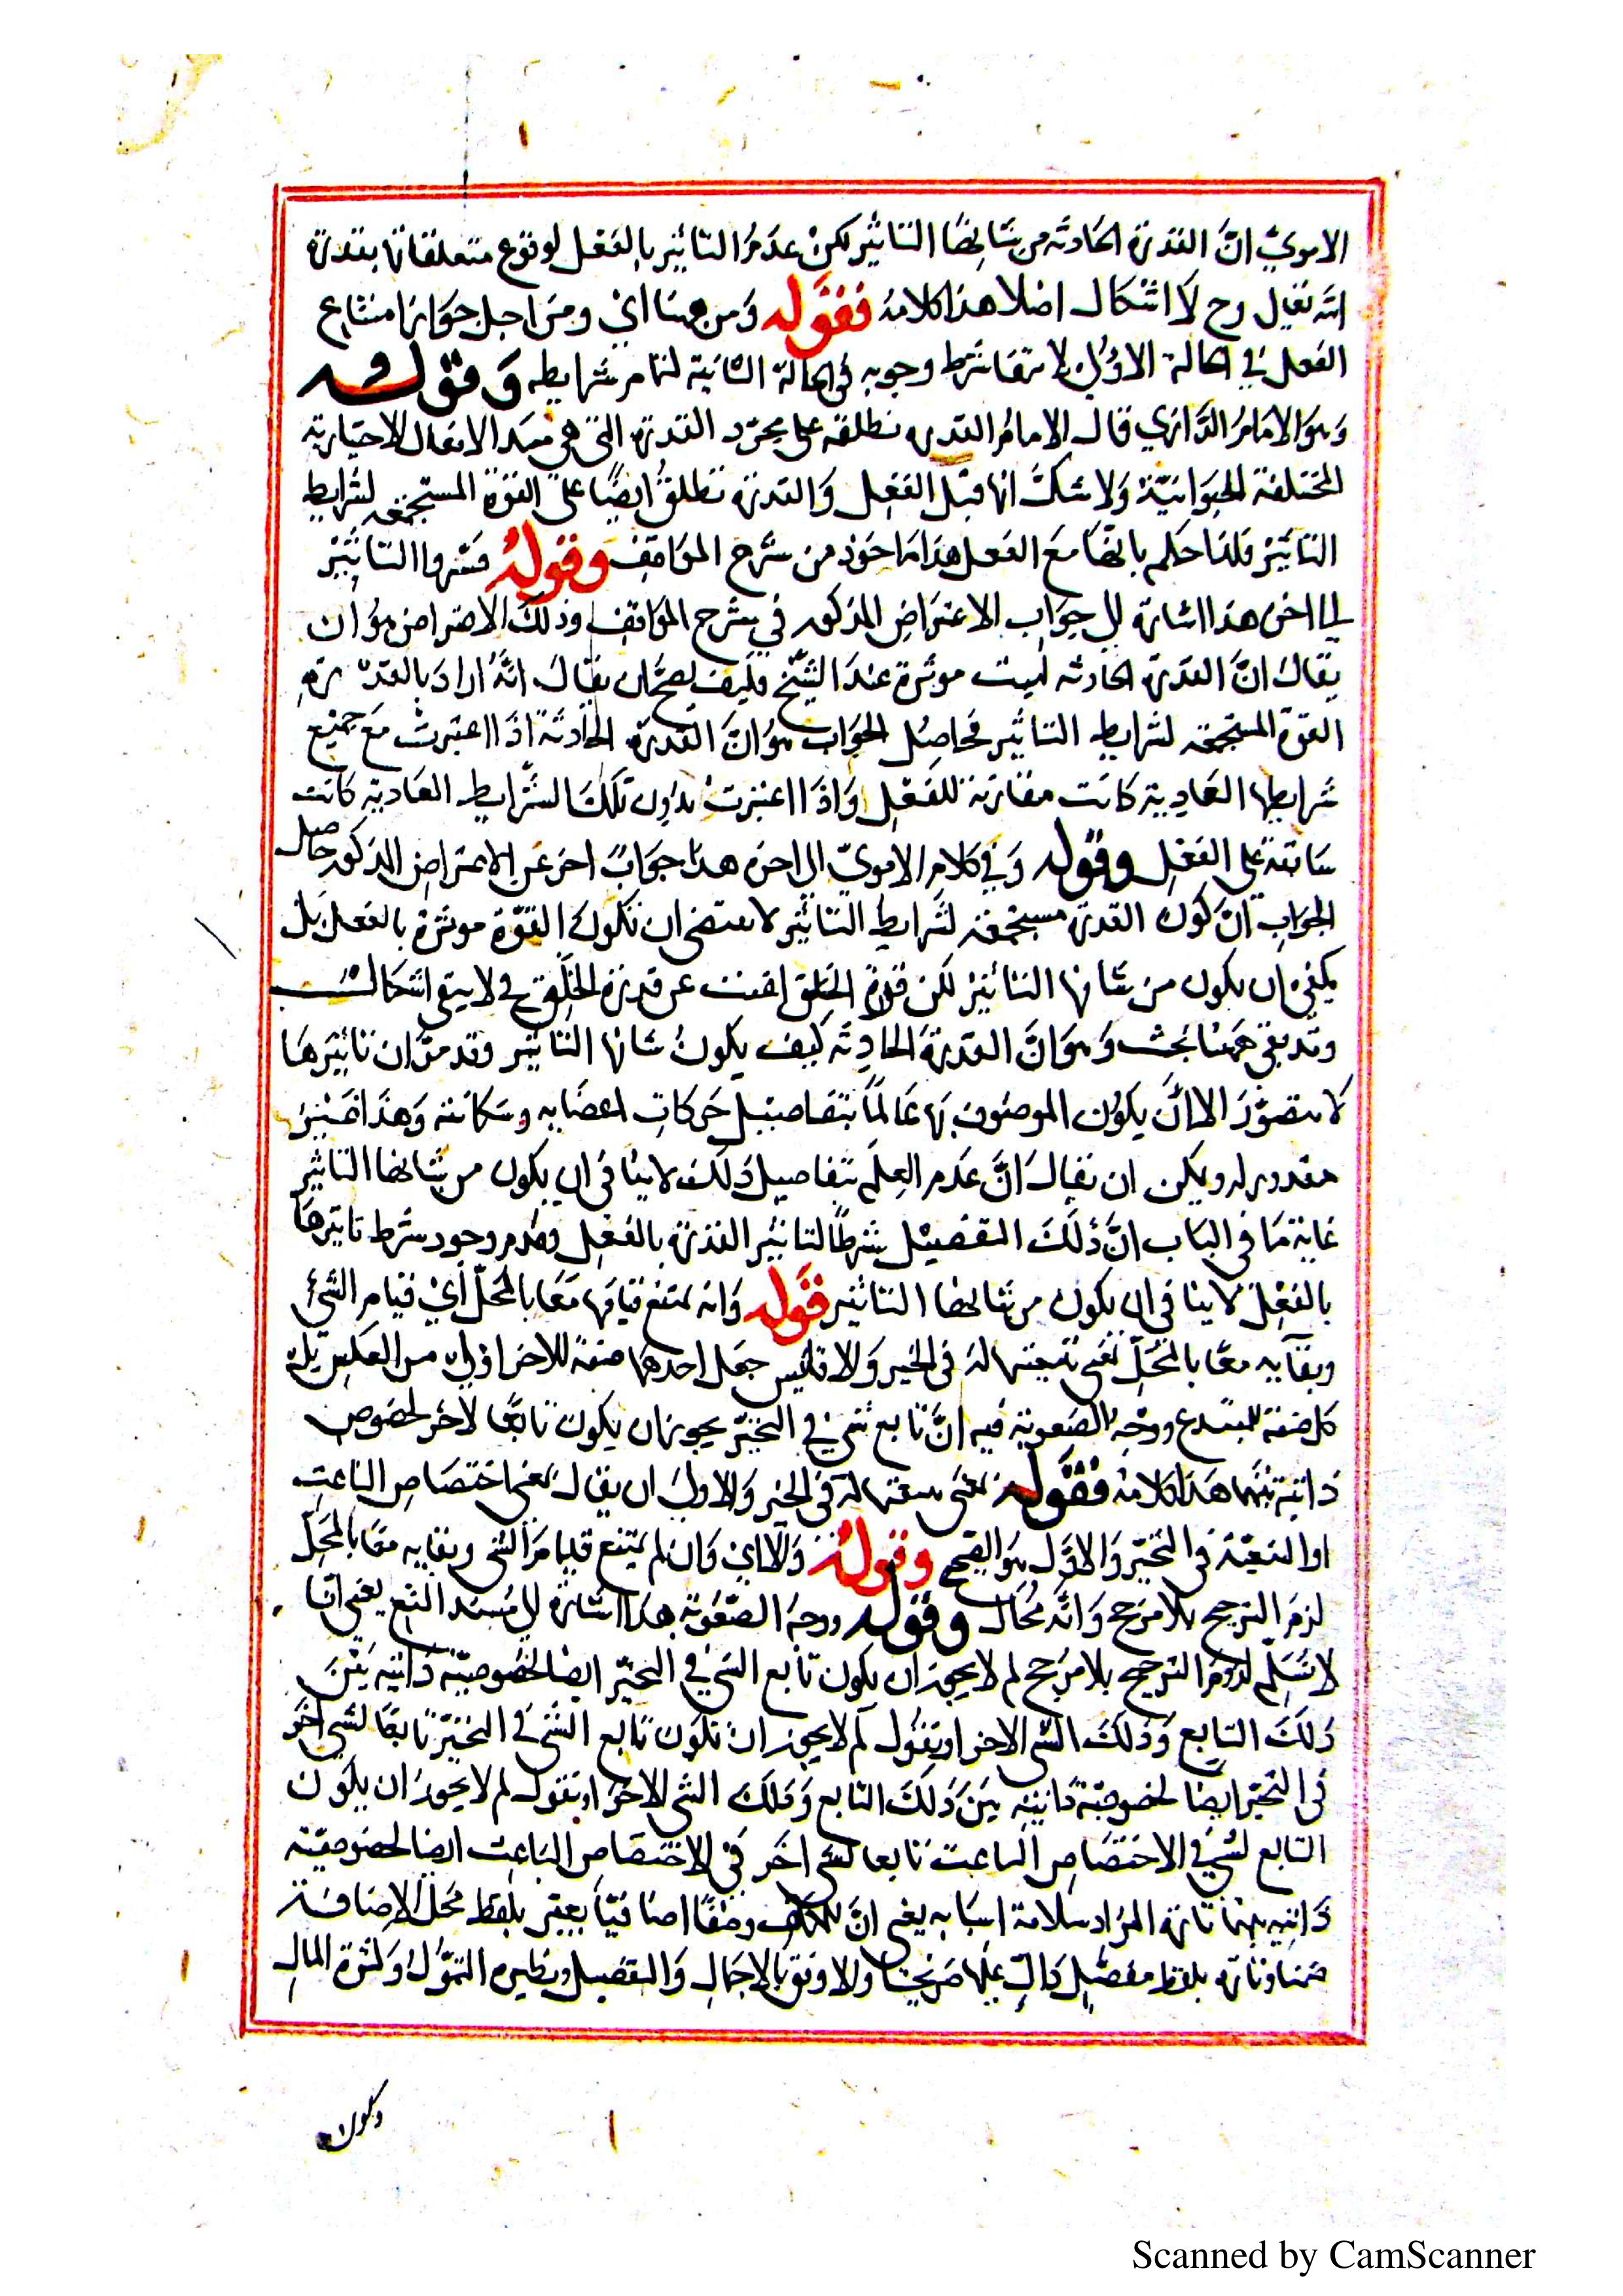 الامويّ انّ القدرة الحادثة من شانها التاثير لكن عدم التاثير بالفعل لوقوع متعلقاتها بقدرة
الله تعالى وح لا اشكال اصلا هذا كلامه فقوله ومن ههنا اي ومن اجل جواز امتناع
الفعل في الحالة الاولى لانتفا شرط وجوبه في الحالة الثانية لتمام شرايطه وقوله
وهو الامام الرازي قال الامام القدرة تطلق على مجرّد القوة التي هي مبدا الافعال الاختيارية
المختلفة الحيوانيّة ولا شك انها قبل الفعل والقدرة تطلق ايضًا على القوة المستجمعة لشرايط
التاثير فلذا حكم بانها مع الفعل هذا ماخوذ من شرح المواقف وقوله فسّروا التاثير
الى اخره هذا اشارة الى جواب الاعتراض المذكور في شرح المواقف وذلك الاعتراض هو ان
يقال انّ القدرة الحادثة ليست موثرة عند الشيخ فكيف يصحّ ان يقال انّه اراد بالقدرة
القوة المستجمعة لشرايط التاثير فحاصل الجواب هو انّ القدرة الحادثة اذا اعتبرت مع جميع
شرايطها العادية كانت مقارنة للفعل واذا اعتبرت بدون تلك الشرايط العادية كانت
سابقة على الفعل وقوله وفي كلام الامويّ الى اخره هذا جواب اخر عن الاعتراض المذكور حاصل
الجواب انّ كون القدرة مستجمعة لشرايط التاثير لا يقتضي ان تكون القوّة موثرة بالفعل بل
يكفي ان يكون من شانها التاثير لكن قدرة الخالق عن قدرة الخلق فح لا يبقى اشكال
وقد بقي ههنا بحث وهو انّ القدرة الحادثة كيف يكون شانها التاثير وقد مرّ ان تاثيرها
لا يتصوّر الا انّ يكون الموصوف بها عالمًا بتفاصيل حركات اعضايه وسكناته وهذا غير
مقدور له ويمكن ان يقال انّ عدم العلم بتفاصيل ذلك لا ينافي ان يكون من شانها التاثير
غاية ما في الباب انّ ذلك التفصيل شرط لتاثير القدرة بالفعل وعدم وجود شرط تاثيرها
بالفعل لا ينافي ان يكون من شانها التاثير قوله وانه يمتنع قيامها معا بالمحلّ اي قيام الشئ
وبقايه معا بالمحلّ بمعنى تبعيتهما له في الحيز والا فليس جعل احدهما صفة للاخر اولى من العكس بل
كل صفة ووجه الصعوبة فيه انّ تابع شي في التحيّز يجوز ان يكون تابعًا لاخر لخصوص
ذاتية بينهما هذا كلامه فقوله بمعنى تبعيتهما له في الحيز والاولى ان يقال بمعنى اختصاص الناعت
او التبعيّة في التحيّز والاوّل هو الصحيح وقوله والا اي وان لم يمتنع قيام الشي وبقايه معا بالمحلّ
لزم الترجيح بلا مرجح وانّه محال وقوله ووجه الصعوبة هذا اشارة الى سند المنع يعني انا
لا نسلّم لزوم الترجيح بلا مرجح لم لا يجوز ان يكون تابع الشي في التحيّز ايضا لخصوصيّة ذاتية بين
ذلك التابع وذلك الشي الاخر او يقول لم لا يجوز ان تكون تابع الشي في التحيّز تابعًا لشي اخر
في التحيّز ايضا لخصوصيّة ذاتية بين ذلك التابع وذلك الشي الاخر او يقول لم لا يجوز ان يكون
التابع لشي في الاختصاص الناعت تابعا لشي اخر في الاختصاص الناعت ايضا لخصوصيّة
ذاتية بينهما تارة المراد سلامة اسبابه يعني انّ للمكلف وصفًا اضافيّا يعبّر بلفظ مجمل الاضافة
ضمنا وتارة بلفظ مفصّل دالّ عليها صريحًا ولا فرق الا بالاجمال والتفصيل ونظيره التموّل وكثرة المال
وكون
Scanned by CamScanner